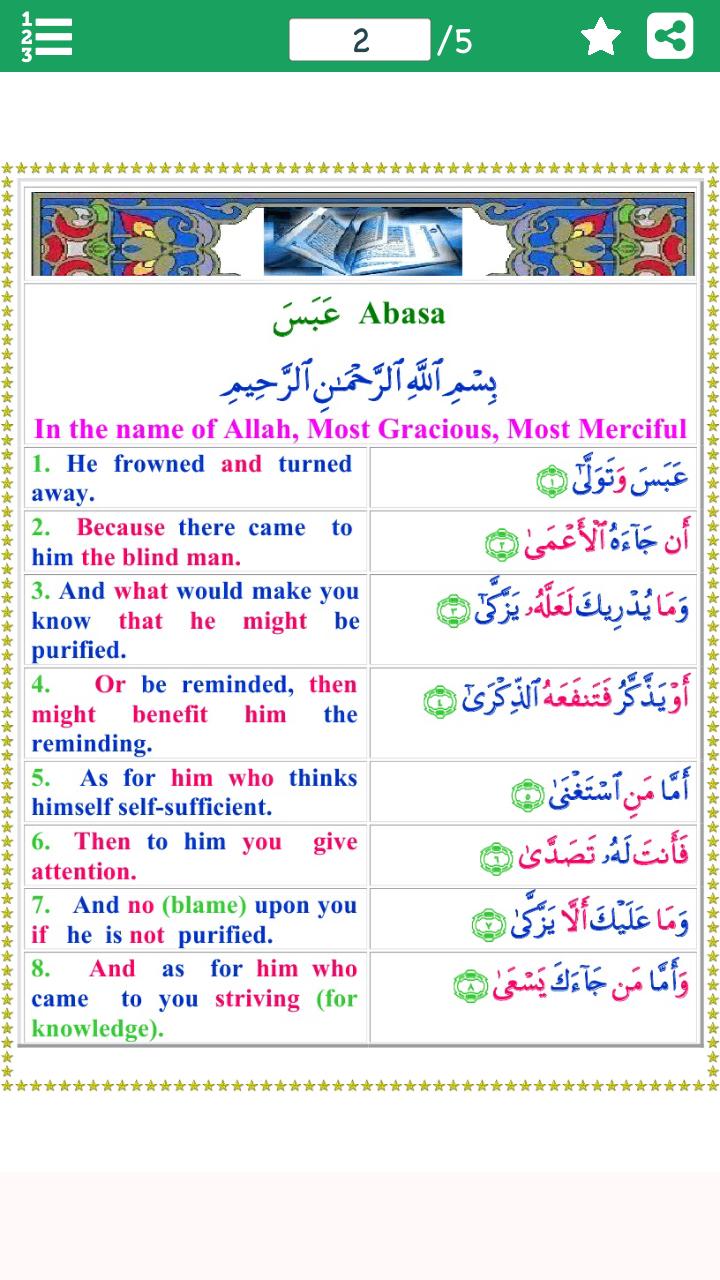 1
2
3
2 /5
عَبَسَ Abasa
بِسْمِ ٱللَّهِ ٱلرَّحْمَـٰنِ ٱلرَّحِيمِ
In the name of Allah, Most Gracious, Most Merciful
1. He frowned and turned
away.
عَبَسَ وَتَوَلَّىٰٓ ١
2. Because there came to
him the blind man.
أَن جَآءَهُ ٱلْأَعْمَىٰ ٢
3. And what would make you
know that he might be
purified.
وَمَا يُدْرِيكَ لَعَلَّهُۥ يَزَّكَّىٰٓ ٣
4. Or be reminded, then
might benefit him the
reminding.
أَوْ يَذَّكَّرُ فَتَنفَعَهُ ٱلذِّكْرَىٰٓ ٤
5. As for him who thinks
himself self-sufficient.
أَمَّا مَنِ ٱسْتَغْنَىٰ ٥
6. Then to him you give
attention.
فَأَنتَ لَهُۥ تَصَدَّىٰ ٦
7. And no (blame) upon you
if he is not purified.
وَمَا عَلَيْكَ أَلَّا يَزَّكَّىٰ ٧
8. And as for him who
came to you striving (for
knowledge).
وَأَمَّا مَن جَآءَكَ يَسْعَىٰ ٨